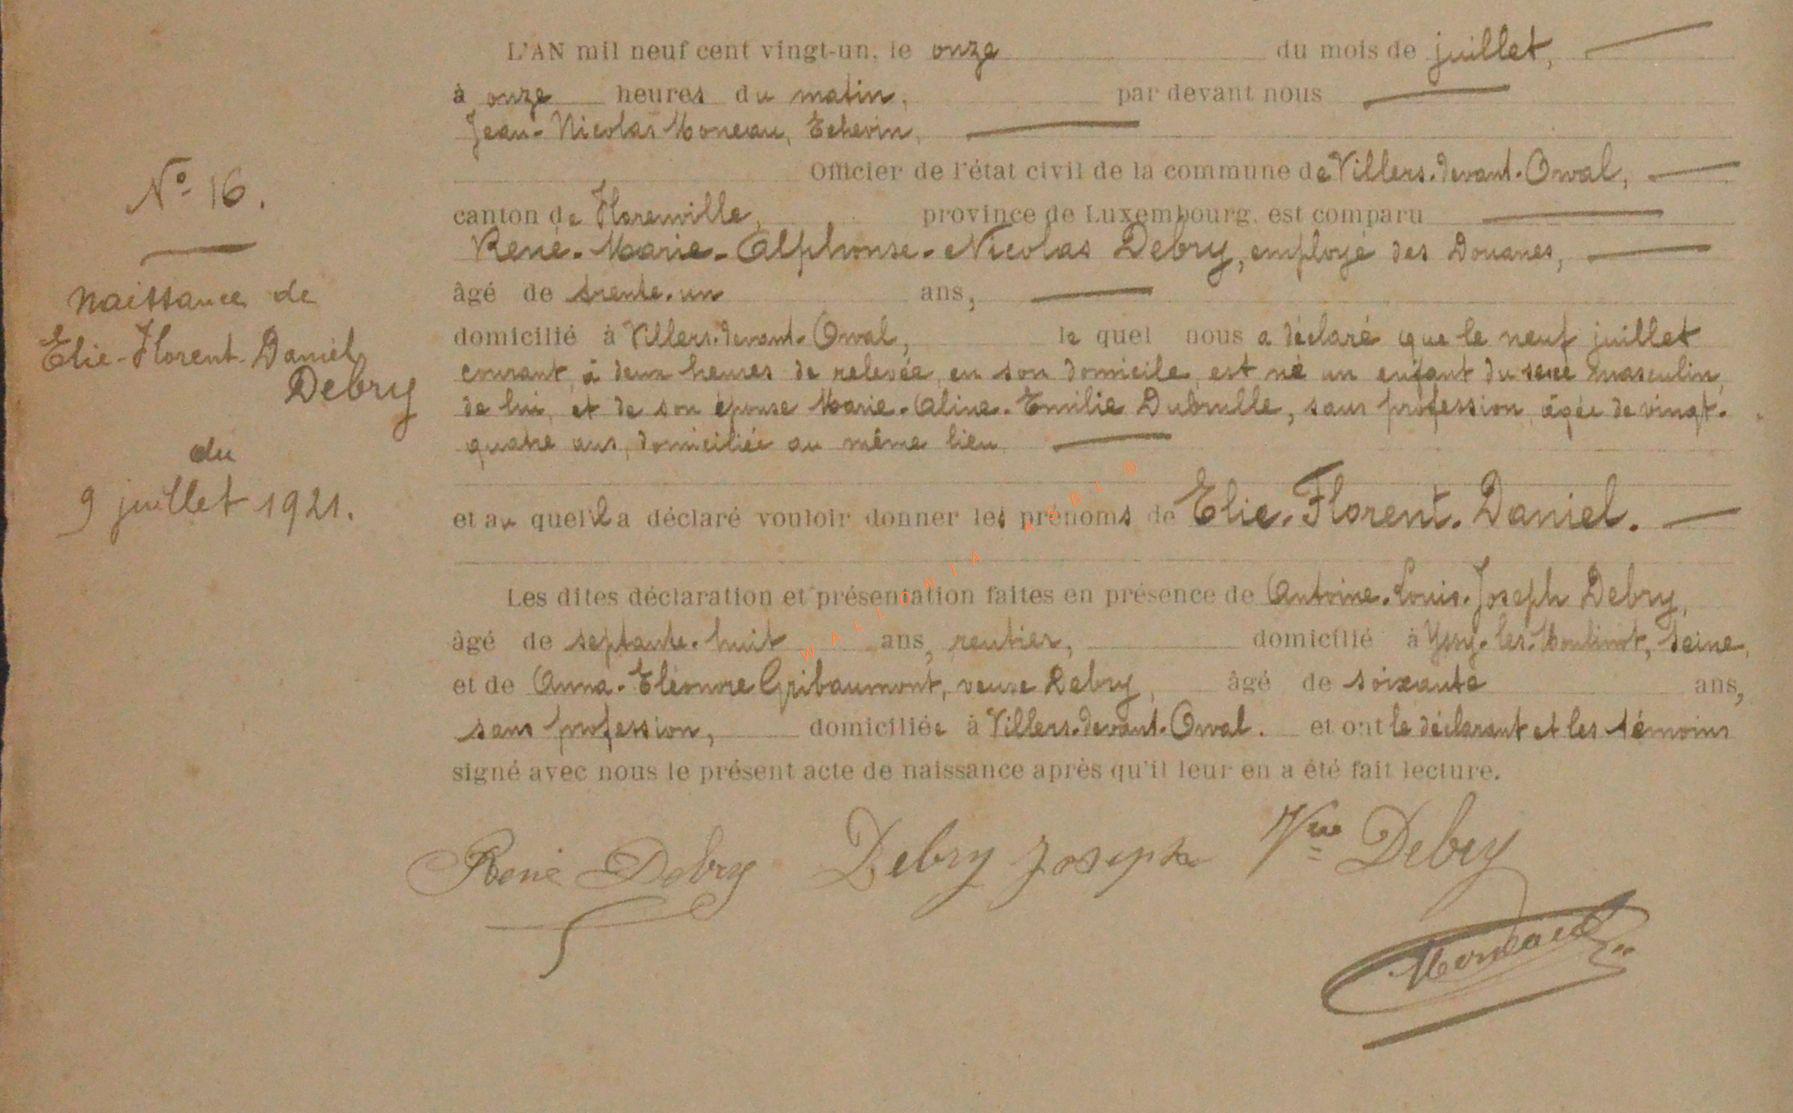 N° 16.
Naissance de
Elie-Florent-Daniel
Debry
du
9 juillet 1921.
L'AN mil neuf cent vingt-un, le onze du mois de juillet,
à onze heures du matin, par devant nous
Jean-Nicolas Moneau, Echevin,
Officier de l'état civil de la commune de Villers-devant-Orval,
canton de Florenville, province de Luxembourg, est comparu
René-Marie-Alphonse-Nicolas Debry, employé des Douanes,
âgé de trente-un ans,
domicilié à Villers-devant-Orval, le quel nous a déclaré que le neuf juillet
courant, à deux heures de relevée, en son domicile, est né un enfant du sexe masculin,
de lui, et de son épouse Marie-Aline-Emilie Dubrulle, sans profession, âgée de vingt-
quatre ans, domiciliée au même lieu
et au quel il a déclaré vouloir donner les prénoms de Elie-Florent-Daniel.
Les dites déclaration et présentation faites en présence de Antoine-Louis-Joseph Debry,
âgé de septante-huit ans, rentier, domicilié à Yssy-les-Moulinot, Seine,
et de Anna-Eléonore Gribaumont, veuve Debry, âgé de soixante ans,
sans profession, domiciliée à Villers-devant-Orval. et ont le déclarant et les témoins
signé avec nous le présent acte de naissance après qu'il leur en a été fait lecture.
René Debry Debry Joseph Vve Debry
Moneau